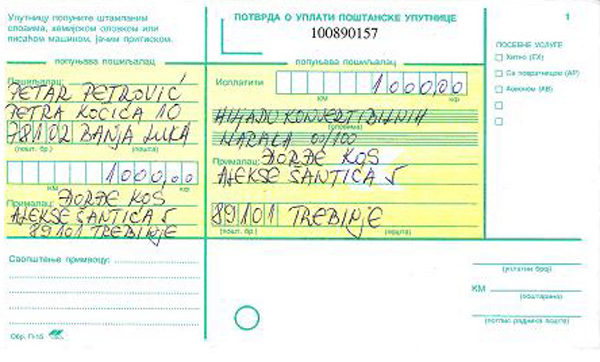 Упутницу попуните штампаним
словима, хемијском оловком или
писаћом машином, јачим притиском.
попуњава пошиљалац
Пошиљалац:
PETAR PETROVIĆ
PETRA KOČIĆA 10
78102 BANJA LUKA
(пошт. бр.) (пошта)
1000,00
Прималац:
ĐORĐE KOS
ALEKSE ŠANTIĆA 5
89101 TREBINJE
Саопштење примаоцу:
Обр. П-15
ПОТВРДА О УПЛАТИ ПОШТАНСКЕ УПУТНИЦЕ
100890157
попуњава пошиљалац
Исплатити
1000,00
КМ кф
HILJADU KONVERTIBILNIH
(словима)
MARAKA 01/100
Прималац:
ĐORĐE KOS
ALEKSE ŠANTIĆA 5
89101 TREBINJE
(пошт. бр.) (пошта)
1
ПОСЕБНЕ УСЛУГЕ
Хитно (ЕХ)
Са повратницом (АР)
Авионом (АВ)
(уплатни број)
КМ
(поштарина)
(потпис радника поште)